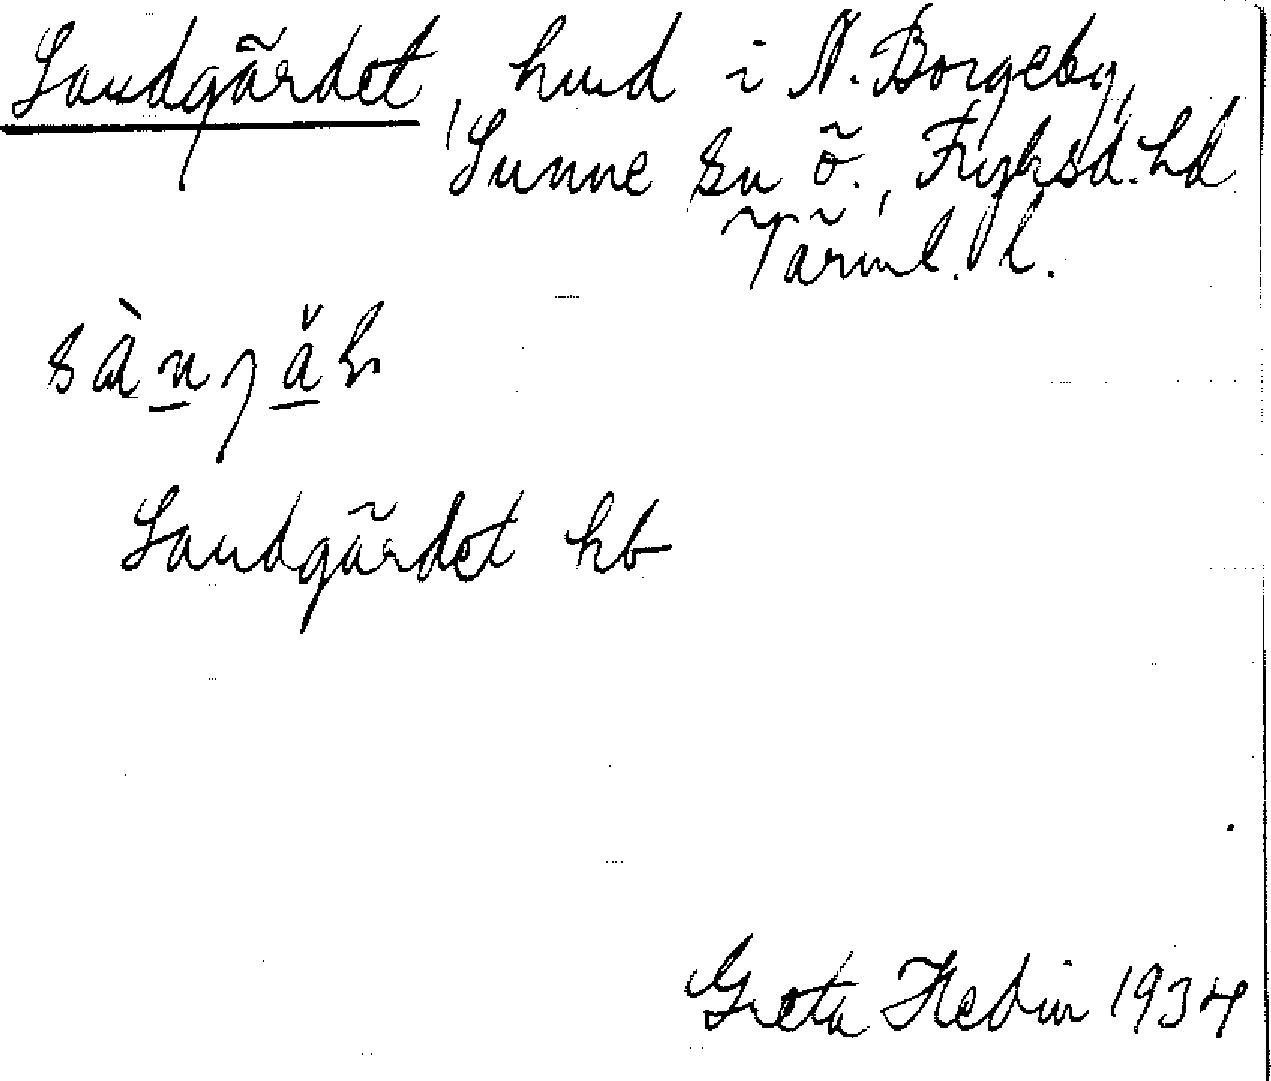 Sandgärdet, hmd i N. Borgeby,
Sunne sn ö., Fryksd. hd
Värml. l.
Sandgärdet hb
Greta Hedin 1934